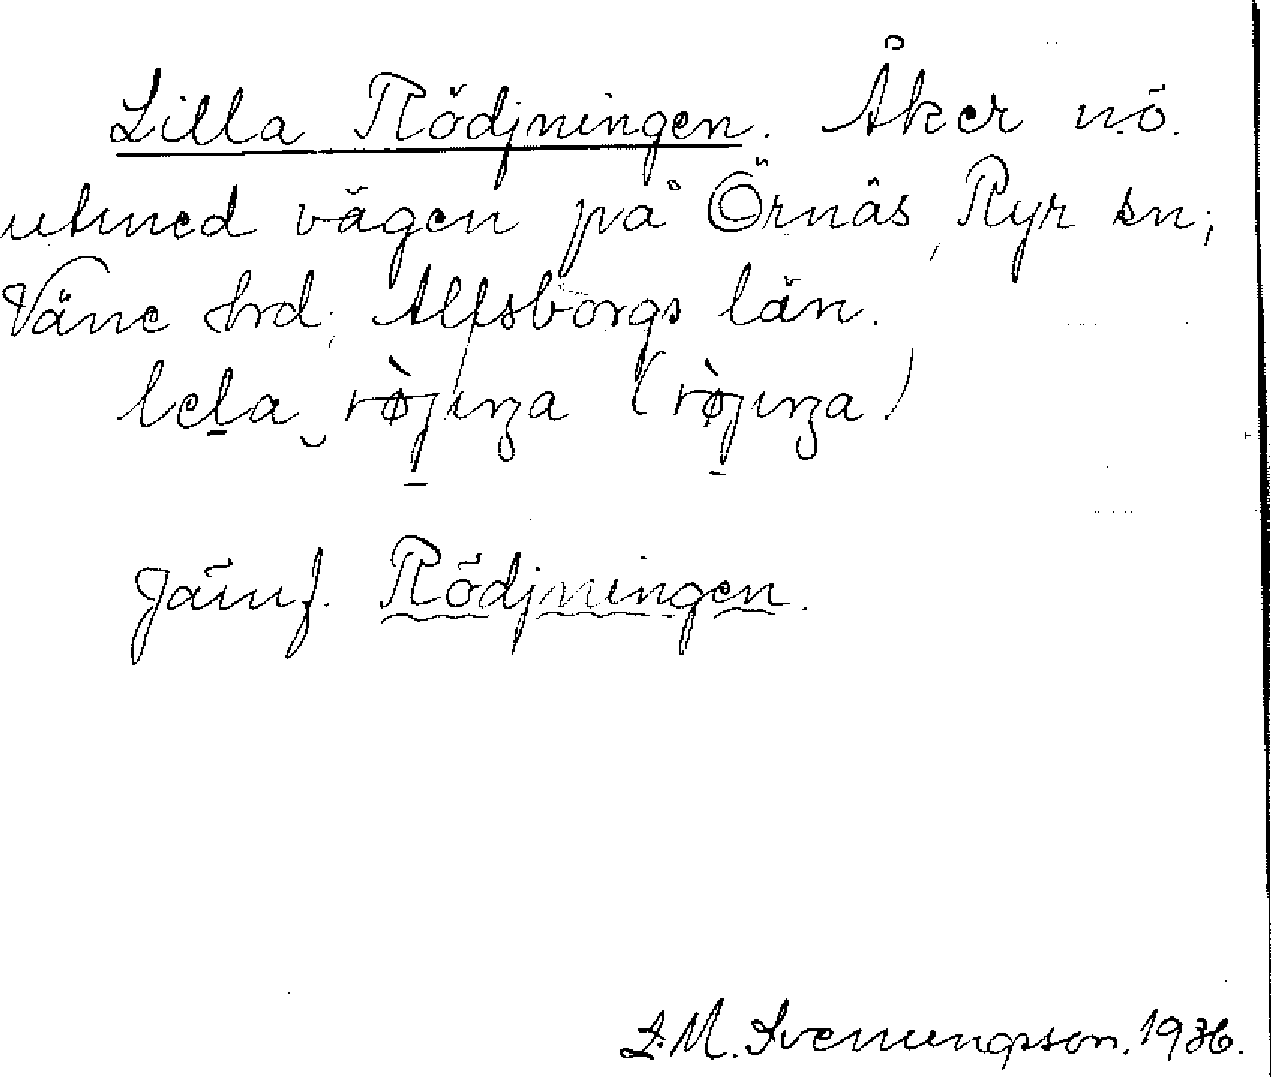 Lilla Rödjningen. Åker n.ö.
utmed vägen på Örnäs, Ryr sn;
Väne hrd; Älfsborgs län.
lela röjinga (röjinga)
Jämf. Rödjningen.
M. Svenungsson. 1936.